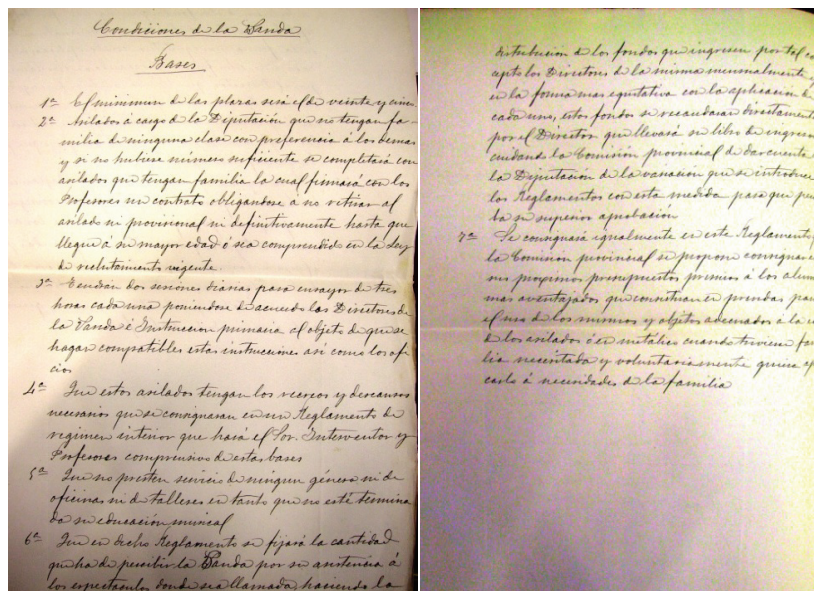 Condiciones de la Banda
Bases
1ª El minimun de las plazas será el de veinte y cinco
2ª Asilados á cargo de la Diputación que no tengan fa-
milia de ninguna clase con preferencia á los demas
y si no hubiese número suficiente se completará con
asilados que tengan familia la cual firmará con los
Profesores un contrato obligandose á no retirar al
asilado ni provisional ni definitivamente hasta que
llegue á su mayor edad ó sea comprendido en la Ley
de reclutamiento vigente
3ª Tendrán dos sesiones diarias para ensayar de tres
horas cada una poniendose de acuerdo los Directores de
la Banda é Instruccion primaria al objeto de que se
hagan compatibles estas instrucciones asi como los ofi
cios
4ª Que estos asilados tengan los recreos y descansos
necesarios que se consignaran en un Reglamento de
regimen interior que hará el Sor. Interventor y
Profesores comprensivo de estas bases
5ª Que no presten servicio de ningun género ni de
oficinas ni de talleres en tanto que no este termina
da su educación musical
6ª Que en dicho Reglamento se fijará la cantidad
que ha de percibir la Banda por su asistencia á
los espectaculos donde sea llamada haciendo la
distribución de los fondos que ingresen por tal con
cepto los Directores de la misma mensualmente y
en la forma mas equitativa con la aplicación de
cada uno, estos fondos se recaudaran directamente
por el Director que llevará su libro de ingresos
cuidando la Comisión provincial de dar cuenta á
la Diputación de la variación que se introduce
los Reglamentos con esta medida para que
ta su superior aprobación
7ª Se consignará igualmente en este Reglamento
la Comisión provincial se propone consignar en
sus proximos presupuestos premios á los alum
mas aventajados que consistiran en prendas para
el uso de los mismos y objetos adecuados á la
de los asilados ó en metálico cuando tuviesen fami
lia necesitada y voluntariamente quiera
carlo á necesidades de la familia